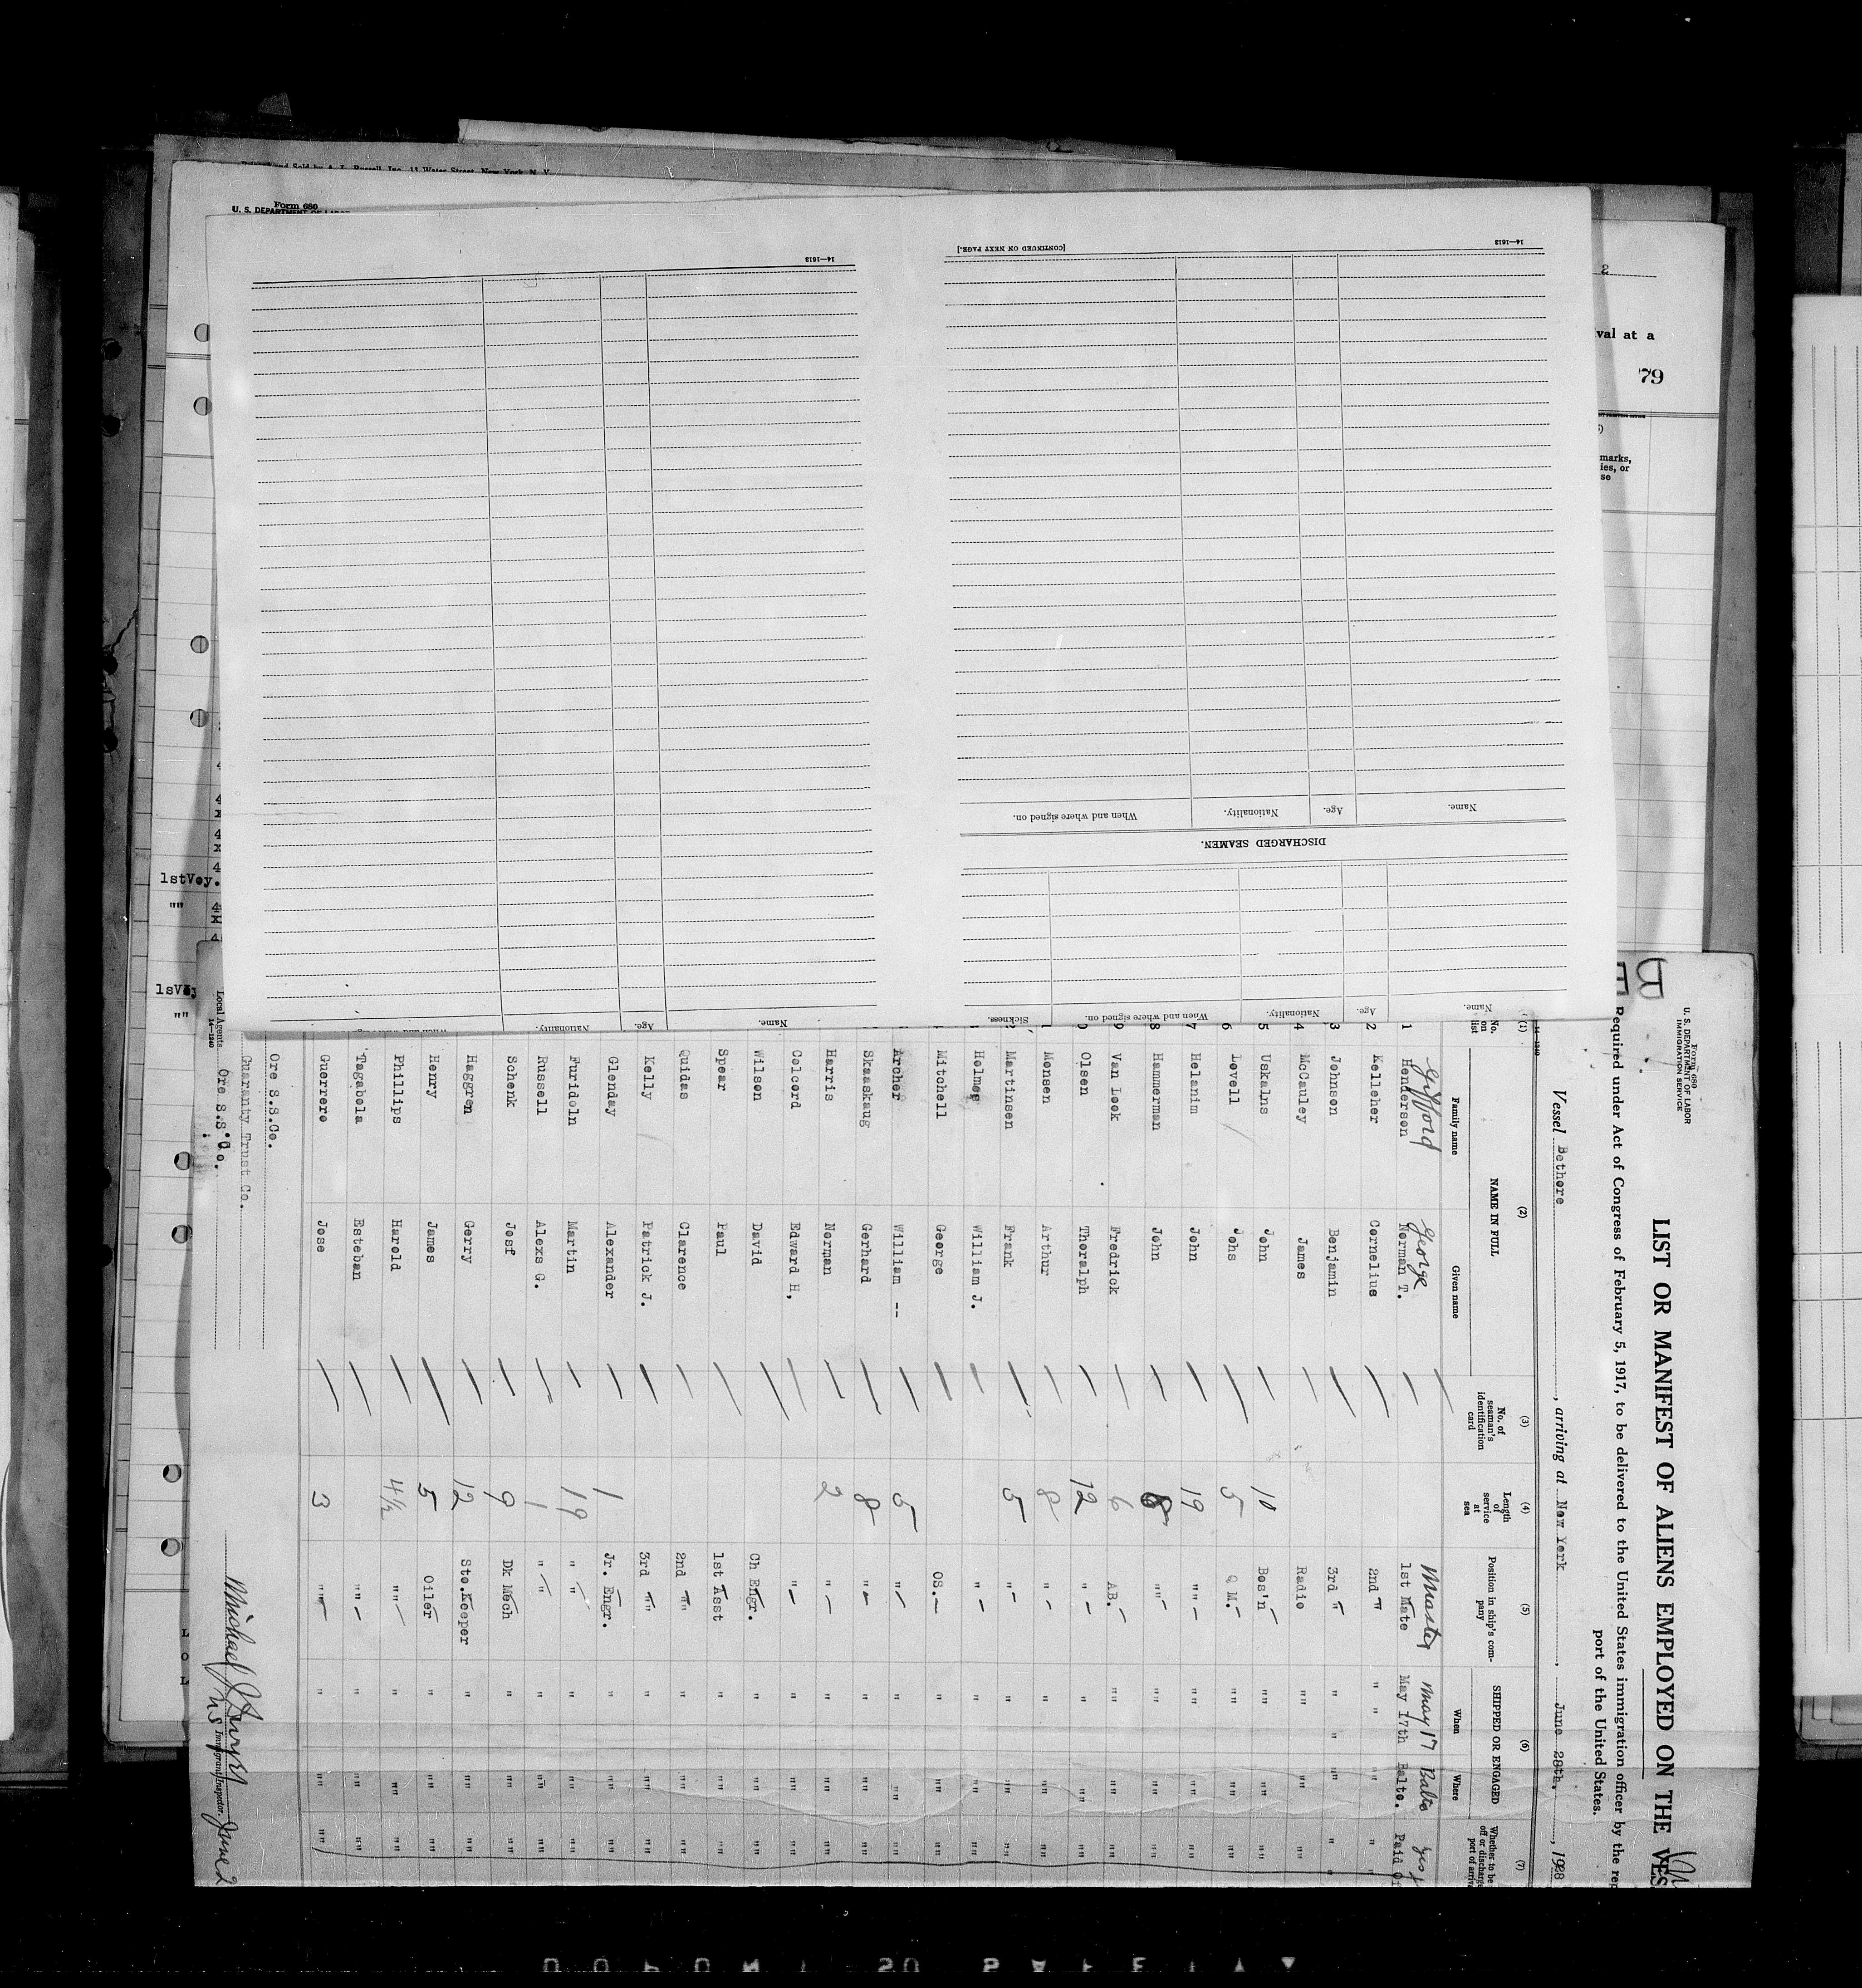 Form 680
U. S. DEPARTMENT OF LABOR
14—1613
[CONTINUED ON NEXT PAGE.]
14—1613
Name.
Age.
Nationality.
When and where signed on.
DISCHARGED SEAMEN.
Name.
Age.
Nationality.
When and where signed on.
Sickness.
Name.
Age.
Nationality.
2
val at a
79
marks,
ies, or
se
1stVoy.
Form 680
U. S. DEPARTMENT OF LABOR
IMMIGRATION SERVICE
LIST OR MANIFEST OF ALIENS EMPLOYED ON THE VES
Required under Act of Congress of February 5, 1917, to be delivered to the United States immigration officer by the rep
port of the United States.
Vessel Bethore, arriving at New York, June 28th., 1928
(1) (2) (3) (4) (5) (6) (7)
No. on list
NAME IN FULL
Family name Given name
No. of seaman's identification card
Length of service at sea
Position in ship's company
SHIPPED OR ENGAGED
When Where
Whether to be
off or discharge
port of arriva
Gifford George Master May 17 Balto yes
1 Henderson Norman T. 1st Mate May 17th Balto. Paid
2 Kelleher Cornelius 2nd " " " "" "
3 Johnson Benjamin 3rd " " " "" "
4 McCauley James Radio "" "" ""
5 Uskalns John 10 Bos'n "" "" ""
6 Lovell Johs 5 Q M. "" "" ""
7 Helanim John 19 "" "" "" ""
8 Hammerman John 8 "" "" "" ""
9 Van Look Fredrick 6 AB. "" "" ""
0 Olsen Thoralph 12 " " "" ""
1 Monsen Arthur 8 " " "" ""
Martinsen Frank 5 " " "" ""
Holmes William J. " " "" ""
Mitchell George OS. " "" ""
Archer William -- 5 " " "" ""
Skaaskaug Gerhard 8 " " "" ""
Harris Norman 2 " " "" ""
Colcord Edward H, " " "" ""
Wilson David Ch Engr. " "" ""
Spear Paul 1st Asst " "" ""
Quidas Clarence 2nd "" " "" ""
Kelly Patrick J. 3rd "" " "" ""
Glenday Alexander 1 Jr. Engr. " "" ""
Furidoln Martin 19 " " " "" ""
Russell Alexs G. 1 " " " "" ""
Schenk Josf 9 Dk Mech " "" ""
Haggren Gerry 12 Sto.Keeper " "" ""
Henry James 5 Oiler " "" ""
Phillips Harold 4½ "" " "" ""
Tagabola Esteban "" " "" ""
Guerrero Jose 3 "" " "" ""
Ore S.S.Co.
Guaranty Trust Co.
Local Agents Ore S.S.Co.
14—1240
Michael J.
Immigrant Inspector.
June 2